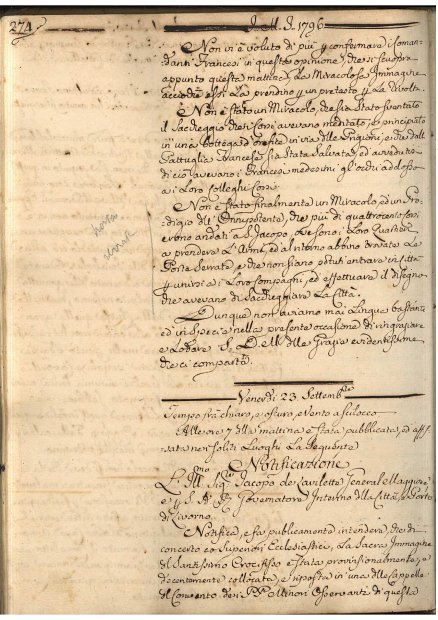 274
I. M. I. 1796
Non vi è voluto di più p confermare i Coman-
danti Francesi in questa opinione, che si scuopra
appunto questa mattina la Miracolosa Immagine
acciò che essi La prendino p un pretesto p La Rivolta.
Non è stato un Miracolo, che sia stato sventato
il Saccheggio che i Corsi avevano meditato, e principiato
in una bottega d'Orefice in via delle Prigioni, e che dalla
Pattuglia Francese sia stata salvata, ed avvedutisi
di ciò avevano i Francesi medesimi gl'ordini addosso
a i Loro Colleghi Corsi.
Non è stato finalmente un Miracolo, ed un Pro-
digio dell'Onnipotente, che più di quattrocento Corsi
erono andati a S. Jacopo, ove sono i Loro Quartieri
a prendere L'Armi, ed al ritorno abbino trovate Le
Porte Serrate, e che non siano potuti entrare in Città
p unirsi a i Loro Compagni, ed effettuare il disegno
che avevano di Saccheggiare La Città.
Dunque non abbiamo mai Lingue bastanti
ed in specie nella presente occasione di ringraziare
e Lodare S. D. M. delle Grazie evidentissime
che ci compartì.
porte
serrate
Venerdì 23. Settembre
Tempo frà chiaro, e oscuro, e vento a scilocco
Alle ore 7 della mattina è stata pubblicata, ed affis-
sata nei soliti Luoghi La seguente
Notificazione
L'Ill.mo Sig.re Jacopo de Lavilette General Maggiore
e p S. A. R. Governatore Interino della Città, e Porto
di Livorno.
Notifica, e fa pubblicamente intendere, che di
concerto co Superiori Ecclesiastici, La Sacra Immagine
del Santissimo Crocifisso è stata provvisionalmente, e
decentemente collocata, e riposta in una delle Cappelle
del Convento dei PP. Minori Osservanti di questa